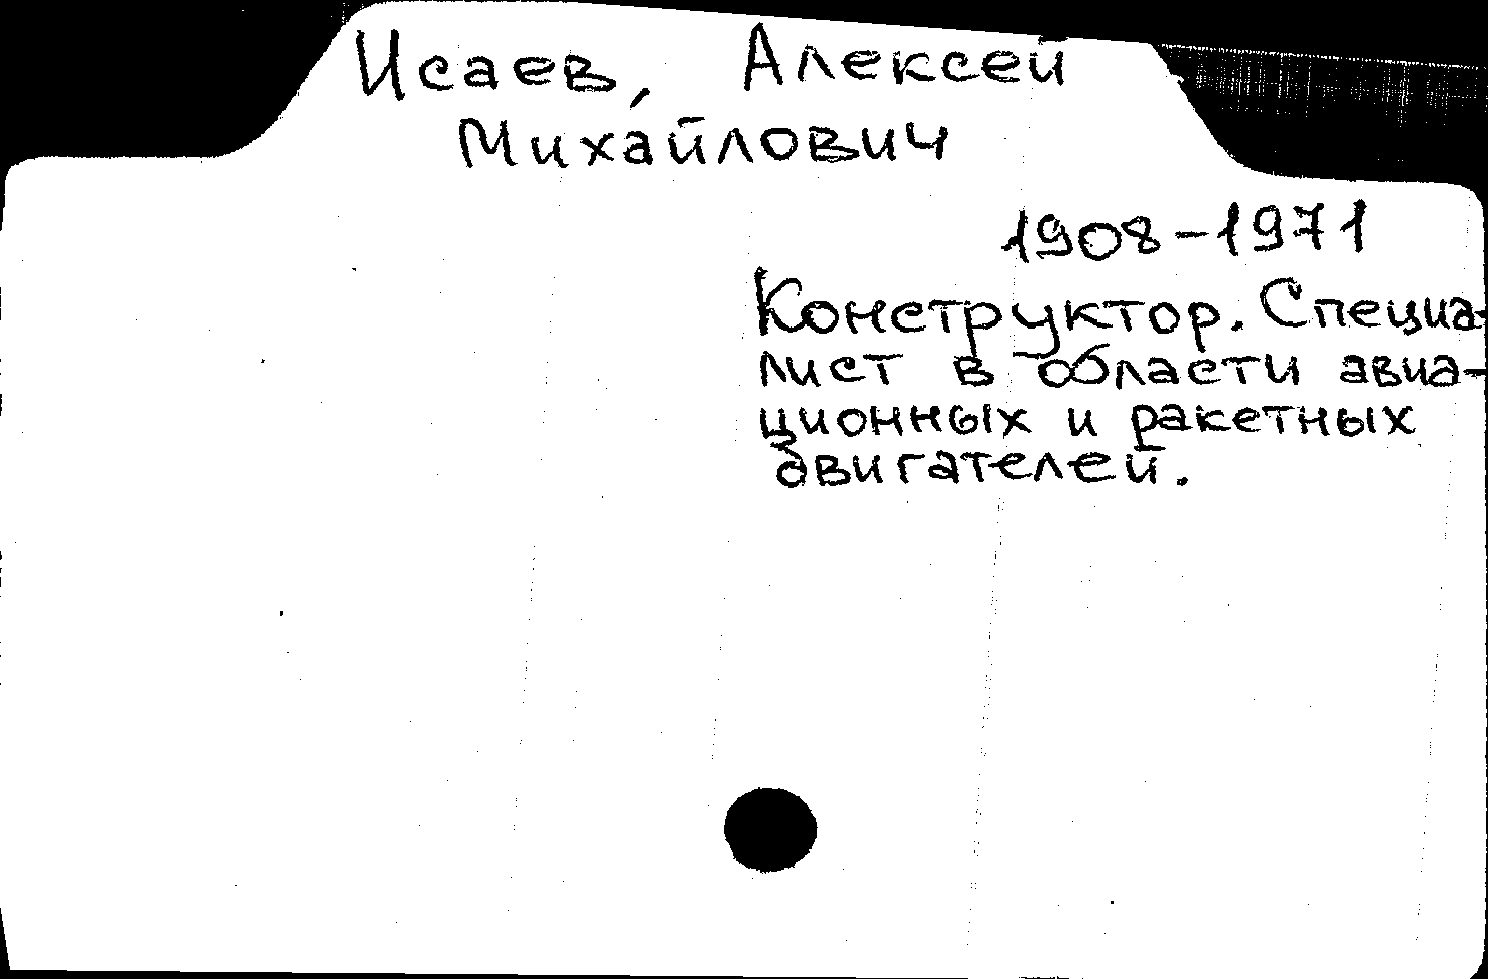 Исаев, Алексей
Михайлович
1908-1971
Конструктор. Специа-
лист в области авиа-
ционных и ракетных
двигателей.